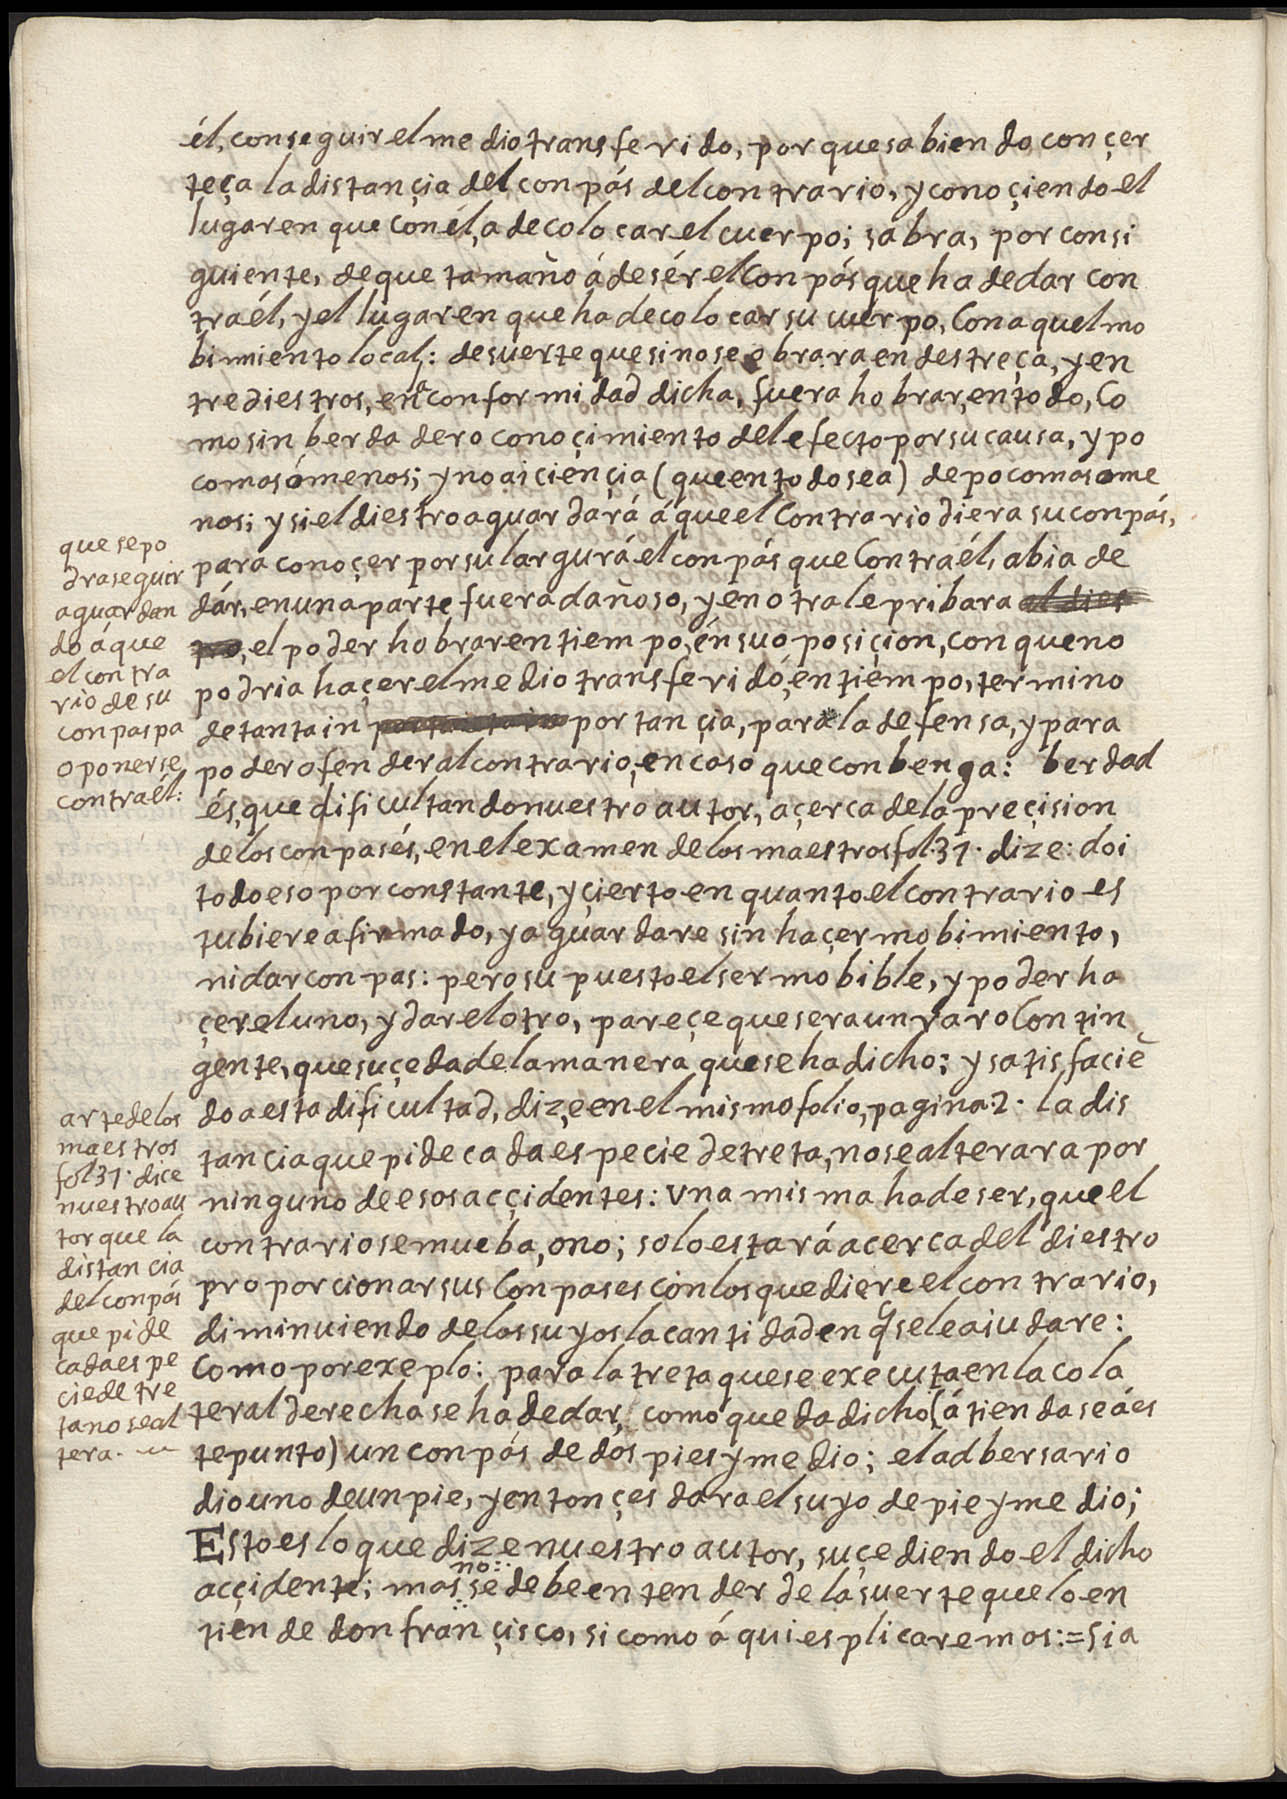 él, conseguir el medio transferido, por que sabiendo con çer
teça la distançia del conpás del contrario, y conoçiendo el
lugar en que con él, a de colocar el cuerpo; sabra, por consi
guiente, de que tamaño á de sér el conpás que ha de dar con
tra él, y el lugar en que ha de colocar su cuerpo, con aquel mo
bimiento local: de suerte que si no se obrara en destreça, y en
tre diestros, en la conformidad dicha, fuera hobrar, en todo, co
mo sin berdadero conoçimiento del efecto por su causa, y po
co mas ó menos; y no ai ciençia (que en todo sea) de poco mas o me
nos; y si el diestro aguardará á que el contrario diera su conpás,
para conoçer por su largurá el conpás que contra él, abia de
dár, en una parte fuera dañoso, y en otra le pribara al dies
tro, el poder hobrar en tiempo, én su oposiçion, con que no
podria haçer el medio transferidó, en tiempo, termino
de tanta in portançia, para la defensa, y para
poder ofender al contrario, en caso que conbenga: berdad
és, que dificultando nuestro autor, açerca de la preçision
de los conpasés, en el examen de los maestros fol. 37. dize: doi
todo eso por constante, y çierto en quanto el contrario es
tubiere afirmado, y aguardare sin haçer mobimiento,
ni dar conpas: pero supuesto el ser mobible, y poder ha
çer el uno, y dar el otro, pareçe que sera un raro contin
gente, que suçeda de la manera que se ha dicho; y satisfaciē
do a esta dificultad, dize en el mismo folio, pagina. 2. la dis
tancia que pide cada especie de treta, no se alterara por
ninguno de esos acçidentes: vna misma ha de ser, que el
contrario se mueba, o no; solo estará acerca del diestro
proporcionar sus conpases con los que diere el contrario,
diminuiendo de los suyos la cantidad en q̄ se le aiudare:
como por exeplo: para la treta que se executa en la cola
teral derecha se ha de dar, como queda dicho (átiendase á es
te punto) un conpás de dos pies y medio; el adbersario
dio uno de un pie, y entonçes dara el suyo de pie y medio;
Esto es lo que dize nuestro autor, suçediendo el dicho
acçidente; mas no se debe entender de la suerte que lo en
tiende don françisco, si como áqui esplicaremos:= si a
que se po
dra seguir
aguardan
do á que
el contra
rio de su
conpas pa
oponerse
contra él:
arte de los
maestros
fol 37. dice
nuestro au
tor que la
distancia
del conpás
que pide
cada espe
cie de tre
ta no se al
tera.